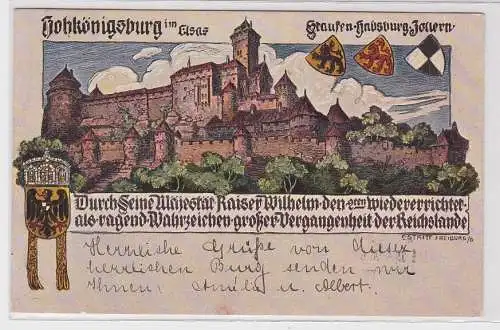 Hohkönigsburg im Elsas
Staufen-Habsburg-Zollern-
Durch Seine Majestät Kaiser Wilhelm den 2ten wiedererrichtet
als ragend Wahrzeichen großer Vergangenheit der Reichslande
Herrliche Grüße von dieser
herrlichen Burg senden wir
Ihnen, u. Albert.